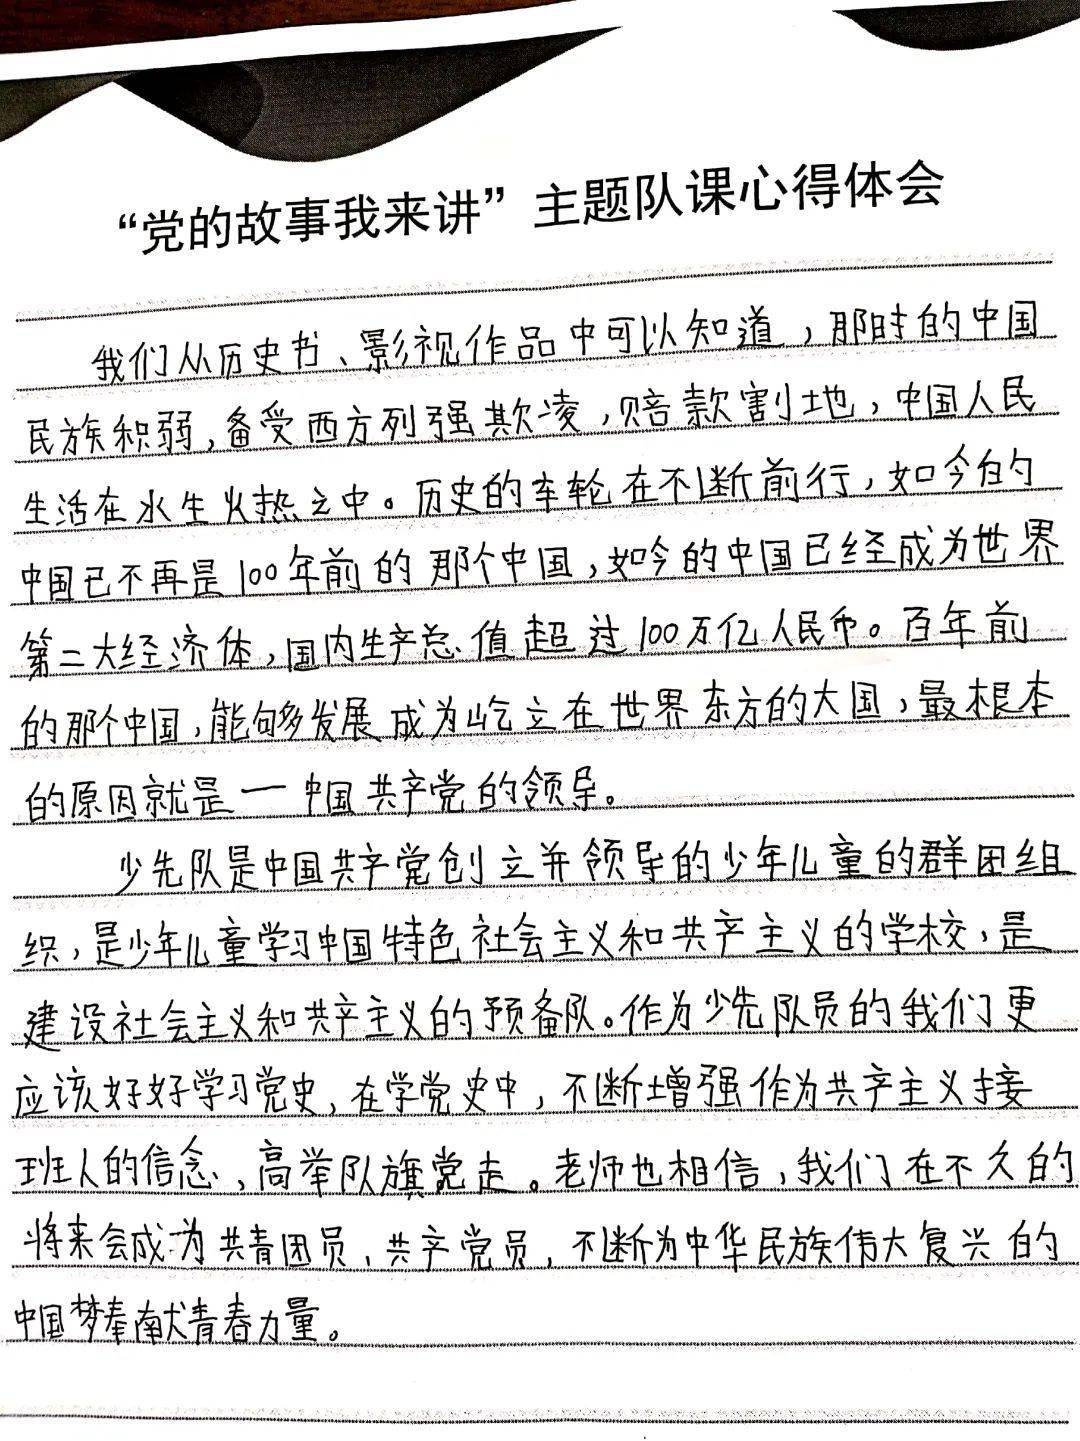 “党的故事我来讲”主题队课心得体会
我们从历史书、影视作品中可以知道，那时的中国
民族积弱，备受西方列强欺凌，赔款割地，中国人民
生活在水生火热之中。历史的车轮在不断前行，如今的
中国已不再是100年前的那个中国，如今的中国已经成为世界
第二大经济体，国内生产总值超过100万亿人民币。百年前
的那个中国，能够发展成为屹立在世界东方的大国，最根本
的原因就是一中国共产党的领导。
少先队是中国共产党创立并领导的少年儿童的群团组
织，是少年儿童学习中国特色社会主义和共产主义的学校，是
建设社会主义和共产主义的预备队。作为少先队员的我们更
应该好好学习党史，在学党史中，不断增强作为共产主义接
班人的信念，高举队旗党走。老师也相信，我们在不久的
将来会成为共青团员、共产党员，不断为中华民族伟大复兴的
中国梦奉献青春力量。